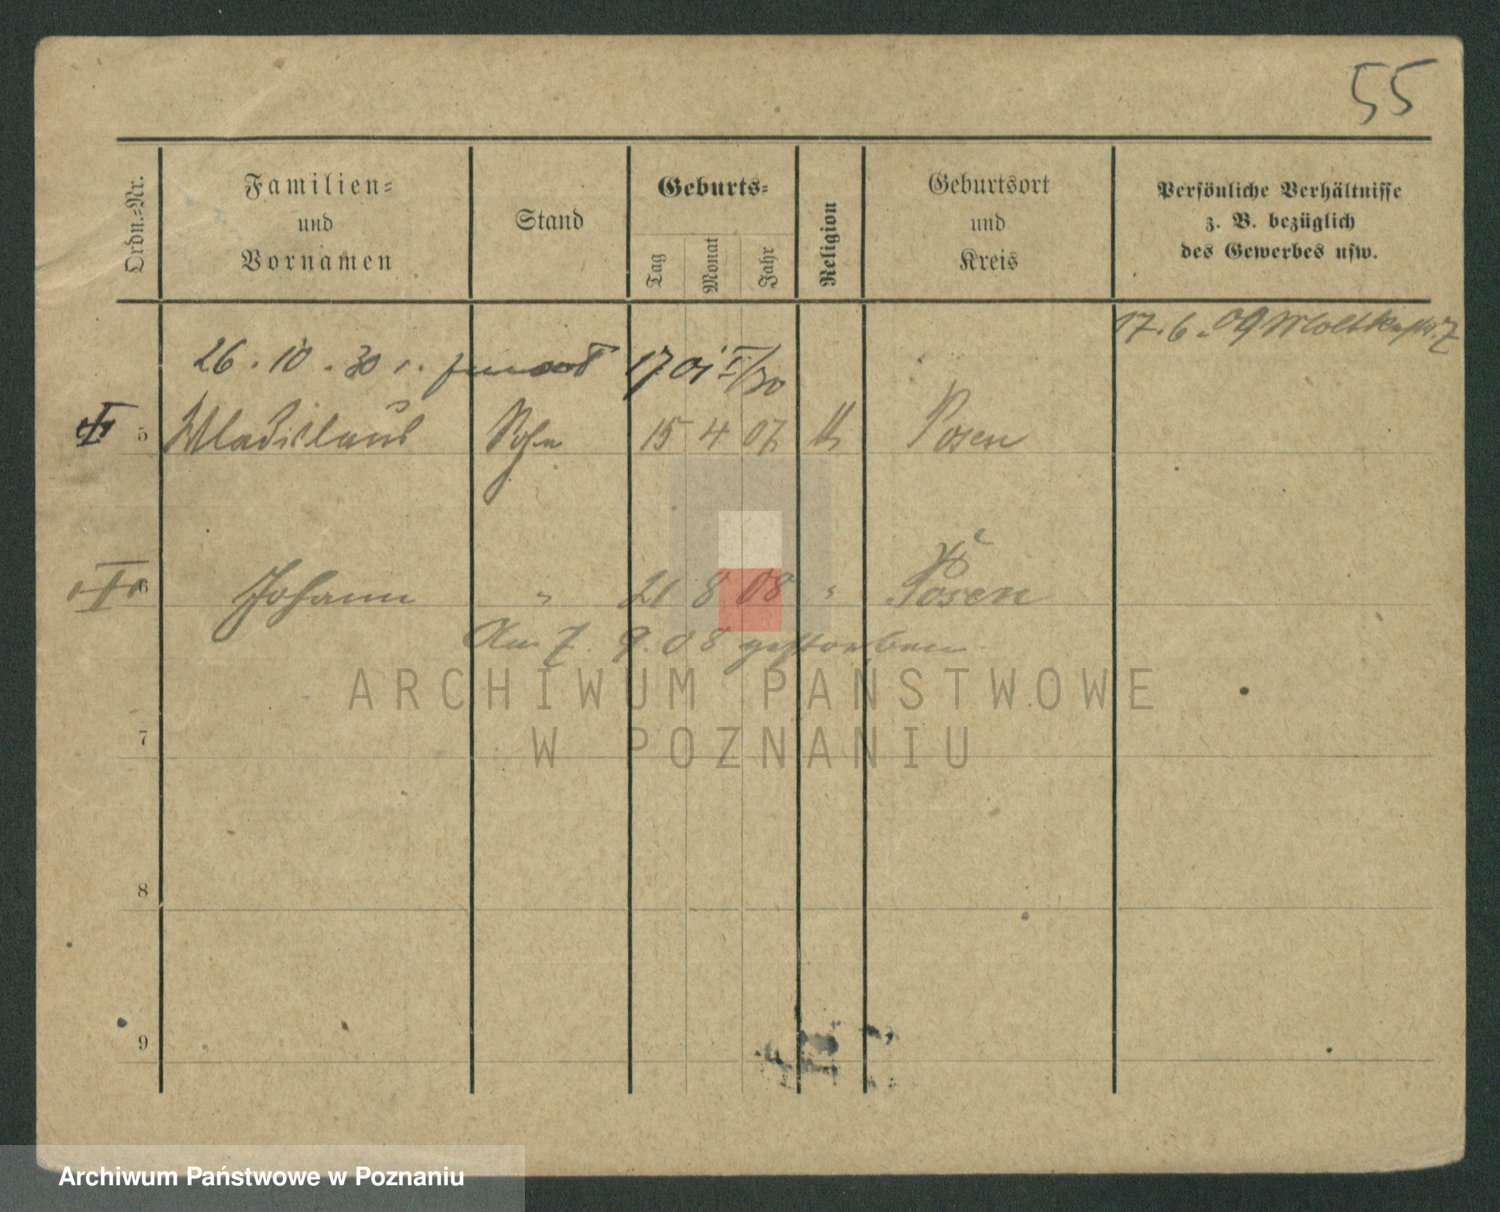 55
Ordn.-Nr.
Familien-
und
Vornamen
Stand
Geburts-
Tag
Monat
Jahr
Religion
Geburtsort
und
Kreis
Persönliche Verhältnisse
z. B. bezüglich
des Gewerbes usw.
17.6.09 Moltkestr. 7
26.10.30
5 Wladislaus Sohn 15 4 07 Posen
6 Johann " 21 8 08 " Posen
Am 7. 9. 08 gestorben
ARCHIWUM PAŃSTWOWE
W POZNANIU
7
8
9
Archiwum Państwowe w Poznaniu